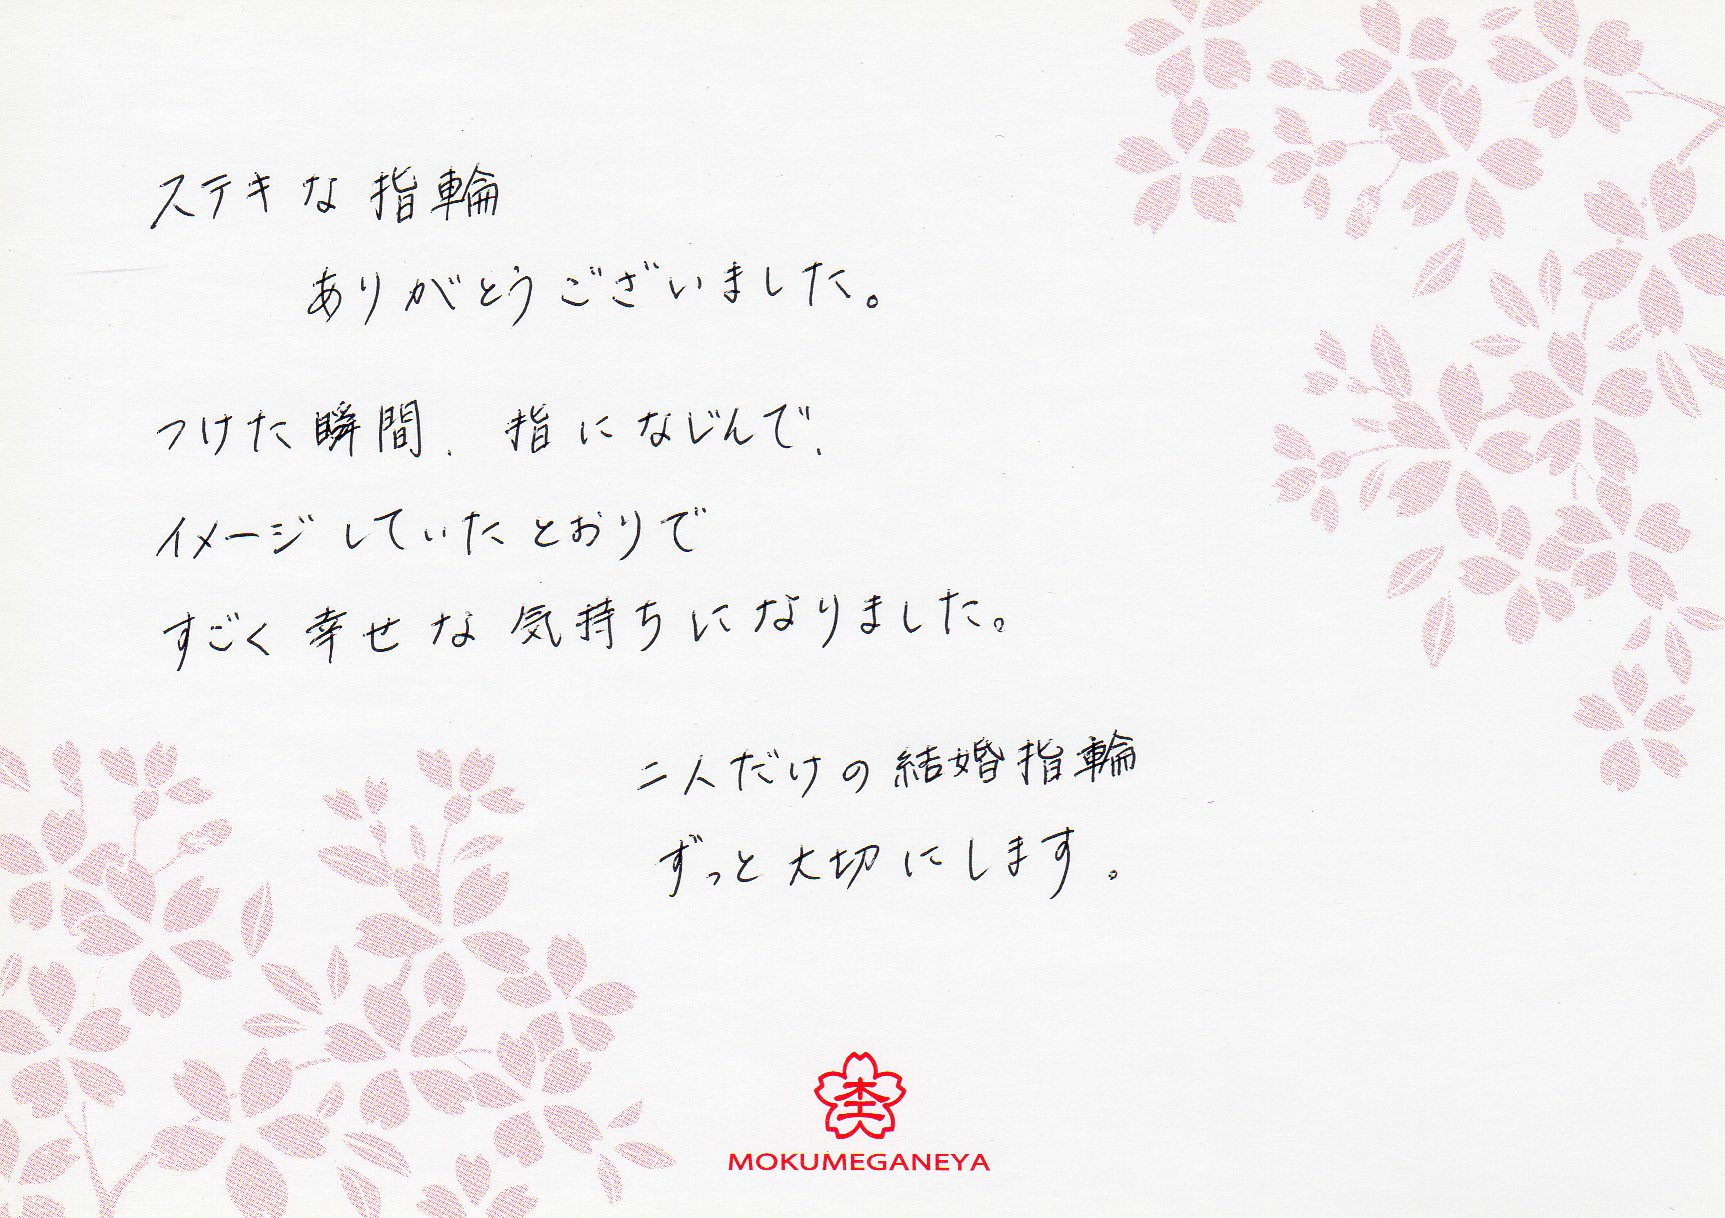 ステキな指輪
ありがとうございました。
つけた瞬間、指になじんで、
イメージしていたとおりで
すごく幸せな気持ちになりました。
二人だけの結婚指輪
ずっと大切にします。
杢
MOKUMEGANEYA